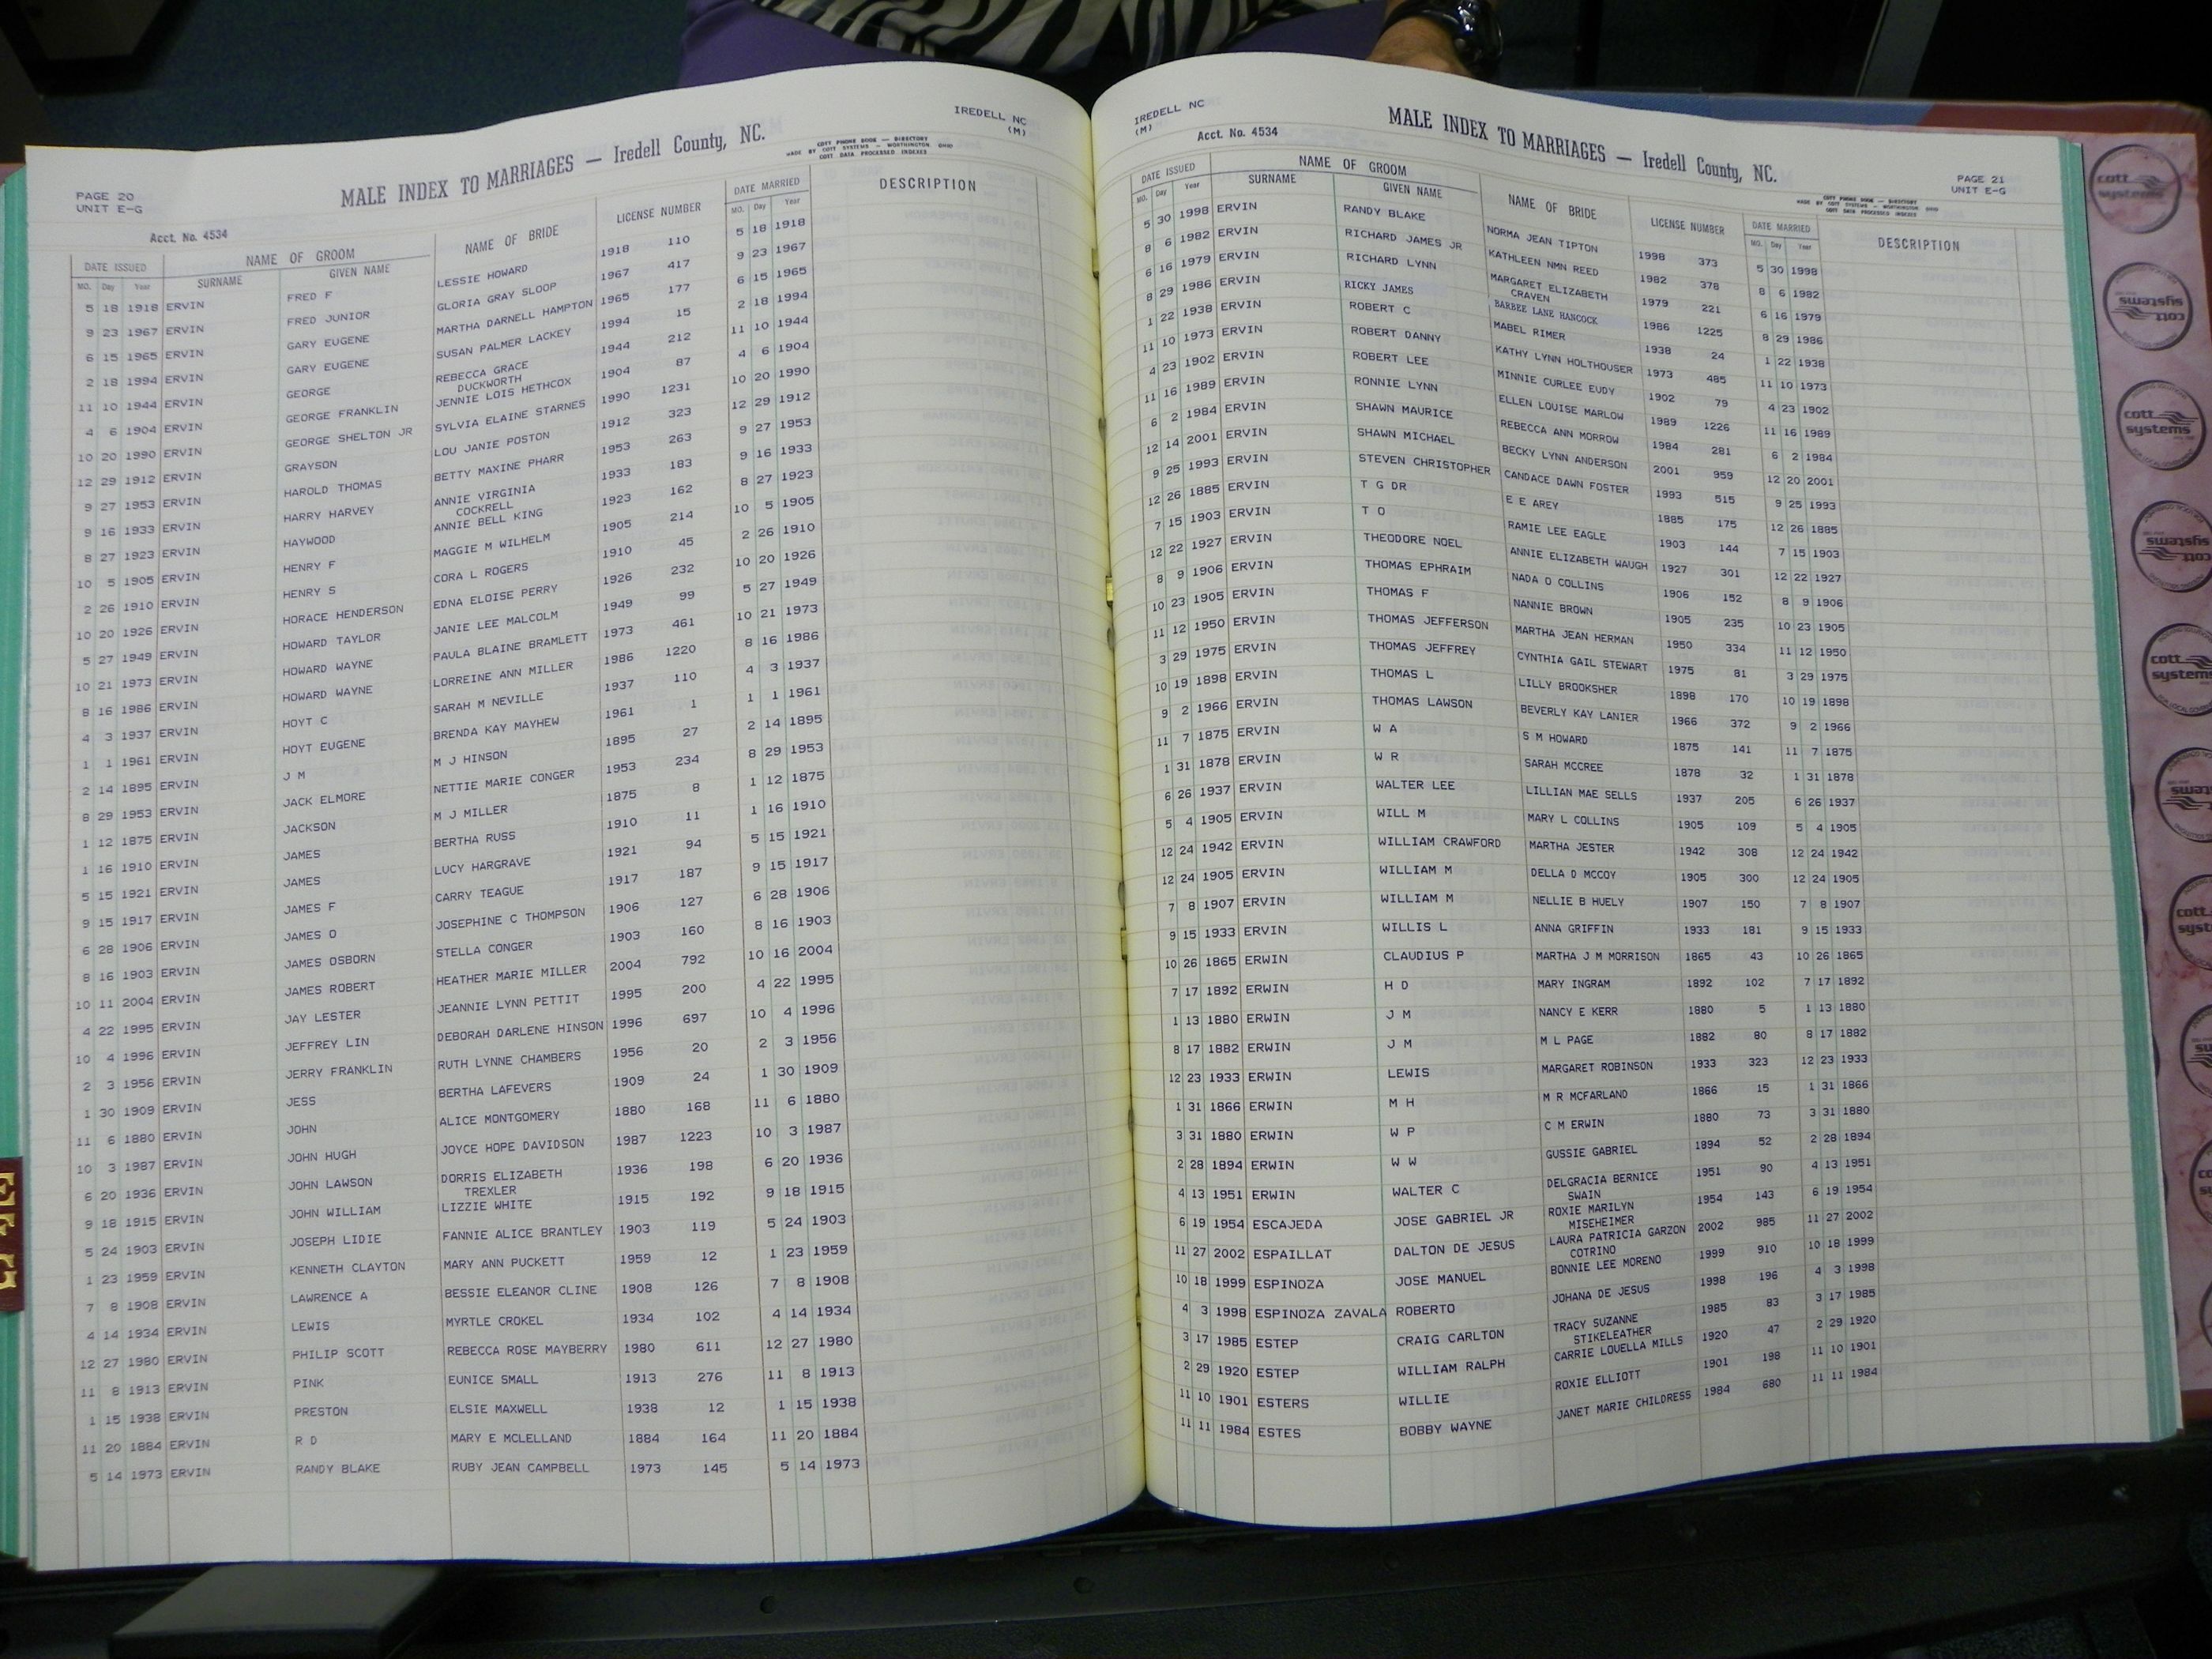 IREDELL NC
(M)
PAGE 20
UNIT E-G
MALE INDEX TO MARRIAGES — Iredell County, NC.
COTT PHONE BOOK — DIRECTORY
MADE BY COTT SYSTEMS — WORTHINGTON, OHIO
COTT DATA PROCESSED INDEXES
Acct. No. 4534
DATE ISSUED NAME OF GROOM NAME OF BRIDE LICENSE NUMBER DATE MARRIED DESCRIPTION
MO. Day Year SURNAME GIVEN NAME MO. Day Year
5 18 1918 ERVIN FRED F LESSIE HOWARD 1918 110 5 18 1918
9 23 1967 ERVIN FRED JUNIOR GLORIA GRAY SLOOP 1967 417 9 23 1967
6 15 1965 ERVIN GARY EUGENE MARTHA DARNELL HAMPTON 1965 177 6 15 1965
2 18 1994 ERVIN GARY EUGENE SUSAN PALMER LACKEY 1994 15 2 18 1994
11 10 1944 ERVIN GEORGE REBECCA GRACE 1944 212 11 10 1944
DUCKWORTH
4 6 1904 ERVIN GEORGE FRANKLIN JENNIE LOIS HETHCOX 1904 87 4 6 1904
10 20 1990 ERVIN GEORGE SHELTON JR SYLVIA ELAINE STARNES 1990 1231 10 20 1990
12 29 1912 ERVIN GRAYSON LOU JANIE POSTON 1912 323 12 29 1912
9 27 1953 ERVIN HAROLD THOMAS BETTY MAXINE PHARR 1953 263 9 27 1953
9 16 1933 ERVIN HARRY HARVEY ANNIE VIRGINIA 1933 183 9 16 1933
COCKRELL
8 27 1923 ERVIN HAYWOOD ANNIE BELL KING 1923 162 8 27 1923
10 5 1905 ERVIN HENRY F MAGGIE M WILHELM 1905 214 10 5 1905
2 26 1910 ERVIN HENRY S CORA L ROGERS 1910 45 2 26 1910
10 20 1926 ERVIN HORACE HENDERSON EDNA ELOISE PERRY 1926 232 10 20 1926
5 27 1949 ERVIN HOWARD TAYLOR JANIE LEE MALCOLM 1949 99 5 27 1949
10 21 1973 ERVIN HOWARD WAYNE PAULA BLAINE BRAMLETT 1973 461 10 21 1973
8 16 1986 ERVIN HOWARD WAYNE LORREINE ANN MILLER 1986 1220 8 16 1986
4 3 1937 ERVIN HOYT C SARAH M NEVILLE 1937 110 4 3 1937
1 1 1961 ERVIN HOYT EUGENE BRENDA KAY MAYHEW 1961 1 1 1 1961
2 14 1895 ERVIN J M M J HINSON 1895 27 2 14 1895
8 29 1953 ERVIN JACK ELMORE NETTIE MARIE CONGER 1953 234 8 29 1953
1 12 1875 ERVIN JACKSON M J MILLER 1875 8 1 12 1875
1 16 1910 ERVIN JAMES BERTHA RUSS 1910 11 1 16 1910
5 15 1921 ERVIN JAMES LUCY HARGRAVE 1921 94 5 15 1921
9 15 1917 ERVIN JAMES F CARRY TEAGUE 1917 187 9 15 1917
6 28 1906 ERVIN JAMES O JOSEPHINE C THOMPSON 1906 127 6 28 1906
8 16 1903 ERVIN JAMES OSBORN STELLA CONGER 1903 160 8 16 1903
10 11 2004 ERVIN JAMES ROBERT HEATHER MARIE MILLER 2004 792 10 16 2004
4 22 1995 ERVIN JAY LESTER JEANNIE LYNN PETTIT 1995 200 4 22 1995
10 4 1996 ERVIN JEFFREY LIN DEBORAH DARLENE HINSON 1996 697 10 4 1996
2 3 1956 ERVIN JERRY FRANKLIN RUTH LYNNE CHAMBERS 1956 20 2 3 1956
1 30 1909 ERVIN JESS BERTHA LAFEVERS 1909 24 1 30 1909
11 6 1880 ERVIN JOHN ALICE MONTGOMERY 1880 168 11 6 1880
10 3 1987 ERVIN JOHN HUGH JOYCE HOPE DAVIDSON 1987 1223 10 3 1987
6 20 1936 ERVIN JOHN LAWSON DORRIS ELIZABETH 1936 198 6 20 1936
TREXLER
9 18 1915 ERVIN JOHN WILLIAM LIZZIE WHITE 1915 192 9 18 1915
5 24 1903 ERVIN JOSEPH LIDIE FANNIE ALICE BRANTLEY 1903 119 5 24 1903
1 23 1959 ERVIN KENNETH CLAYTON MARY ANN PUCKETT 1959 12 1 23 1959
7 8 1908 ERVIN LAWRENCE A BESSIE ELEANOR CLINE 1908 126 7 8 1908
4 14 1934 ERVIN LEWIS MYRTLE CROKEL 1934 102 4 14 1934
12 27 1980 ERVIN PHILIP SCOTT REBECCA ROSE MAYBERRY 1980 611 12 27 1980
11 8 1913 ERVIN PINK EUNICE SMALL 1913 276 11 8 1913
1 15 1938 ERVIN PRESTON ELSIE MAXWELL 1938 12 1 15 1938
11 20 1884 ERVIN R D MARY E MCLELLAND 1884 164 11 20 1884
5 14 1973 ERVIN RANDY BLAKE RUBY JEAN CAMPBELL 1973 145 5 14 1973
E F G
IREDELL NC
(M)
Acct. No. 4534
MALE INDEX TO MARRIAGES — Iredell County, NC.
PAGE 21
UNIT E-G
COTT PHONE BOOK — DIRECTORY
MADE BY COTT SYSTEMS — WORTHINGTON, OHIO
COTT DATA PROCESSED INDEXES
DATE ISSUED NAME OF GROOM NAME OF BRIDE LICENSE NUMBER DATE MARRIED DESCRIPTION
MO. Day Year SURNAME GIVEN NAME MO. Day Year
5 30 1998 ERVIN RANDY BLAKE NORMA JEAN TIPTON 1998 373 5 30 1998
8 6 1982 ERVIN RICHARD JAMES JR KATHLEEN NMN REED 1982 378 8 6 1982
6 16 1979 ERVIN RICHARD LYNN MARGARET ELIZABETH 1979 221 6 16 1979
CRAVEN
8 29 1986 ERVIN RICKY JAMES BARBEE LANE HANCOCK 1986 1225 8 29 1986
1 22 1938 ERVIN ROBERT C MABEL RIMER 1938 24 1 22 1938
11 10 1973 ERVIN ROBERT DANNY KATHY LYNN HOLTHOUSER 1973 485 11 10 1973
4 23 1902 ERVIN ROBERT LEE MINNIE CURLEE EUDY 1902 79 4 23 1902
11 16 1989 ERVIN RONNIE LYNN ELLEN LOUISE MARLOW 1989 1226 11 16 1989
6 2 1984 ERVIN SHAWN MAURICE REBECCA ANN MORROW 1984 281 6 2 1984
12 14 2001 ERVIN SHAWN MICHAEL BECKY LYNN ANDERSON 2001 959 12 20 2001
9 25 1993 ERVIN STEVEN CHRISTOPHER CANDACE DAWN FOSTER 1993 515 9 25 1993
12 26 1885 ERVIN T G DR E E AREY 1885 175 12 26 1885
7 15 1903 ERVIN T O RAMIE LEE EAGLE 1903 144 7 15 1903
12 22 1927 ERVIN THEODORE NOEL ANNIE ELIZABETH WAUGH 1927 301 12 22 1927
8 9 1906 ERVIN THOMAS EPHRAIM NADA O COLLINS 1906 152 8 9 1906
10 23 1905 ERVIN THOMAS F NANNIE BROWN 1905 235 10 23 1905
11 12 1950 ERVIN THOMAS JEFFERSON MARTHA JEAN HERMAN 1950 334 11 12 1950
3 29 1975 ERVIN THOMAS JEFFREY CYNTHIA GAIL STEWART 1975 81 3 29 1975
10 19 1898 ERVIN THOMAS L LILLY BROOKSHER 1898 170 10 19 1898
9 2 1966 ERVIN THOMAS LAWSON BEVERLY KAY LANIER 1966 372 9 2 1966
11 7 1875 ERVIN W A S M HOWARD 1875 141 11 7 1875
1 31 1878 ERVIN W R SARAH MCCREE 1878 32 1 31 1878
6 26 1937 ERVIN WALTER LEE LILLIAN MAE SELLS 1937 205 6 26 1937
5 4 1905 ERVIN WILL M MARY L COLLINS 1905 109 5 4 1905
12 24 1942 ERVIN WILLIAM CRAWFORD MARTHA JESTER 1942 308 12 24 1942
12 24 1905 ERVIN WILLIAM M DELLA D MCCOY 1905 300 12 24 1905
7 8 1907 ERVIN WILLIAM M NELLIE B HUELY 1907 150 7 8 1907
9 15 1933 ERVIN WILLIS L ANNA GRIFFIN 1933 181 9 15 1933
10 26 1865 ERWIN CLAUDIUS P MARTHA J M MORRISON 1865 43 10 26 1865
7 17 1892 ERWIN H D MARY INGRAM 1892 102 7 17 1892
1 13 1880 ERWIN J M NANCY E KERR 1880 5 1 13 1880
8 17 1882 ERWIN J M M L PAGE 1882 80 8 17 1882
12 23 1933 ERWIN LEWIS MARGARET ROBINSON 1933 323 12 23 1933
1 31 1866 ERWIN M H M R MCFARLAND 1866 15 1 31 1866
3 31 1880 ERWIN W P C M ERWIN 1880 73 3 31 1880
2 28 1894 ERWIN W W GUSSIE GABRIEL 1894 52 2 28 1894
4 13 1951 ERWIN WALTER C DELGRACIA BERNICE 1951 90 4 13 1951
SWAIN
6 19 1954 ESCAJEDA JOSE GABRIEL JR ROXIE MARILYN 1954 143 6 19 1954
MISEHEIMER
11 27 2002 ESPAILLAT DALTON DE JESUS LAURA PATRICIA GARZON 2002 985 11 27 2002
COTRINO
10 18 1999 ESPINOZA JOSE MANUEL BONNIE LEE MORENO 1999 910 10 18 1999
4 3 1998 ESPINOZA ZAVALA ROBERTO JOHANA DE JESUS 1998 196 4 3 1998
3 17 1985 ESTEP CRAIG CARLTON TRACY SUZANNE 1985 83 3 17 1985
STIKELEATHER
2 29 1920 ESTEP WILLIAM RALPH CARRIE LOUELLA MILLS 1920 47 2 29 1920
11 10 1901 ESTERS WILLIE ROXIE ELLIOTT 1901 198 11 10 1901
11 11 1984 ESTES BOBBY WAYNE JANET MARIE CHILDRESS 1984 680 11 11 1984
cott
systems
cott
systems
cott
systems
cott
systems
cott
systems